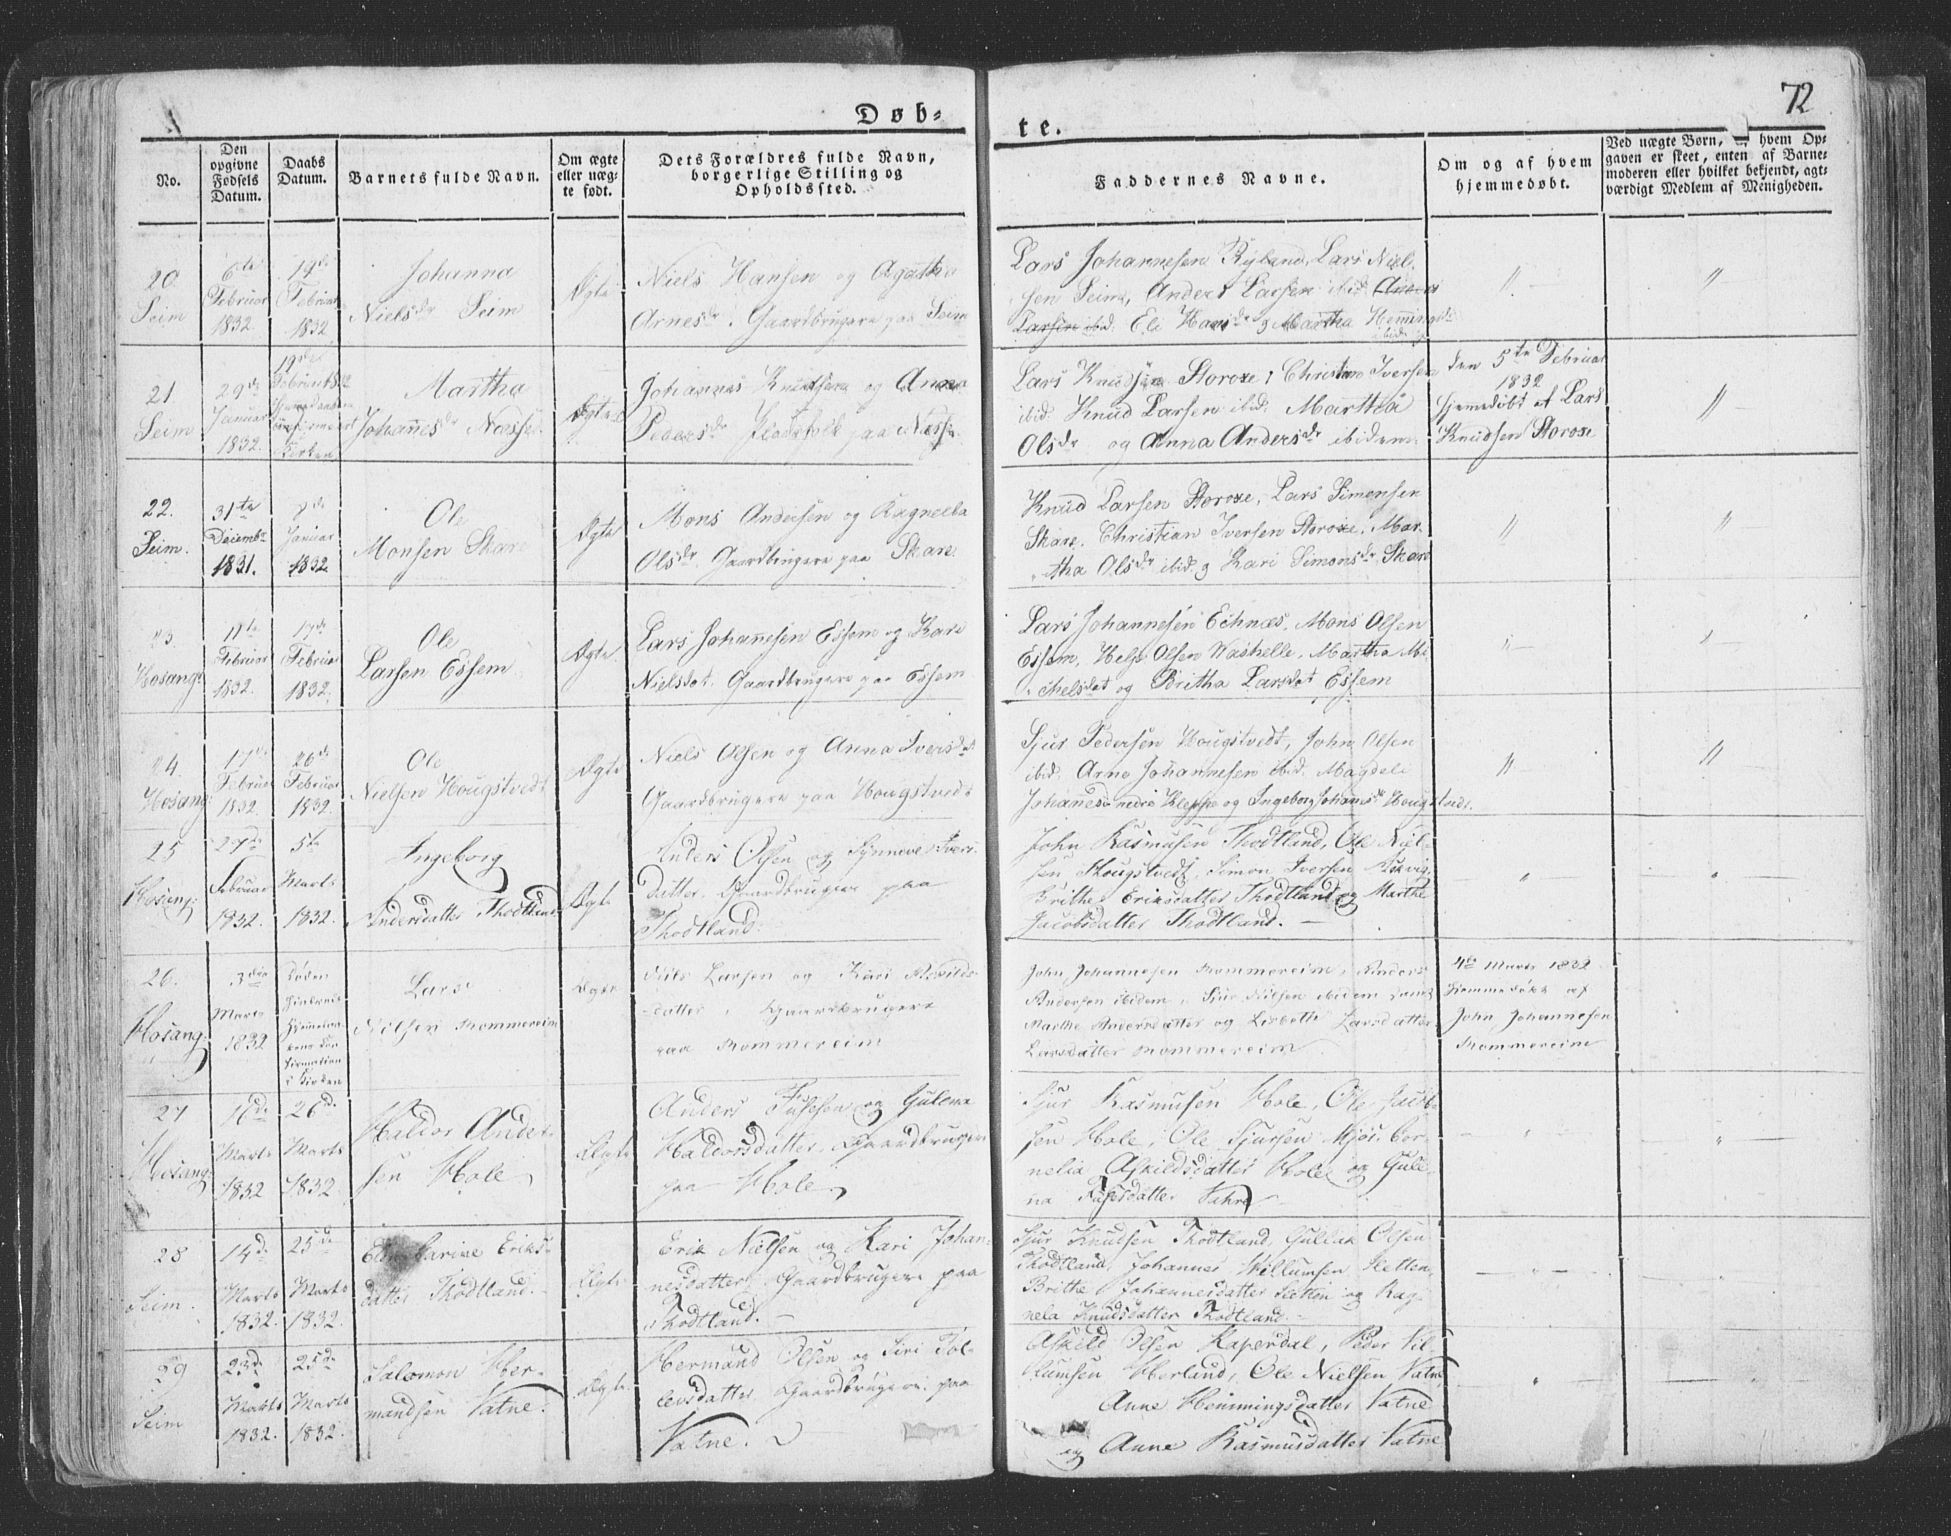 72
Døb-
te.
No.
Den
opgivne
Fødsels
Datum.
Daabs
Datum.
Barnets fulde Navn.
Om ægte
eller uæg-
te født.
Dets Forældres fulde Navn,
borgerlige Stilling og
Opholdssted.
Faddernes Navne.
Om og af hvem
hjemmedøbt.
Ved uægte Børn, hvem Op-
gaven er skeet, enten af Barne-
moderen eller hvilket bekjendt, agt-
værdigt Medlem af Menigheden.
20.
Seim
6te
Februar
1832
19de
Februar
1832
Johanna
Nielsdr Seim
Ægte
Niels Hansen og Agatha
Arnesdr. Gaardbrugere paa Seim
Lars Johannesen Ryland, Lars Niel-
sen Seim, Anders Larsen ibid. Anders
Larsen ibid. Eli Hansdr og Martha Hemingsdr
ibid.
"
"
21.
Seim
29de
Januar
1832.
19de
Februar 1832
Kirken
Martha
Johannesdr Næsse
Ægte
Johannes Knudsen og Anna
Pedersdr paa Næsse
Lars Knudsen Storoxe, Christian Iversen
ibid. Knud Larsen ibid. Martha
Olsdr og Anna Andersdr ibidem
den 5te Februar
1832
hjemmedøbt af Lars
Knudsen Storoxe
"
22.
Seim.
31te
Decembr
1831.
Januar
1832.
Ole
Monsen Skare
Ægte
Mons Andersen og Ragnelba
Olsdr. Gaardbrugere paa Skare.
Knud Larsen Storoxe, Lars Simonsen
Skare, Christian Iversen Storoxe, Mar-
tha Olsdr ibid. og Kari Simonsdr Skare
"
"
23.
Hosang:
11te
Februar
1832.
17de
Februar
1832.
Ole
Larsen Essem
Ægte
Lars Johannesen Essem og Kari
Nielsdat. Gaardbrugere paa Essem
Lars Johannesen Echnæs, Mons Olsen
Essem, Helje Olsen Washelle, Martha Mi-
chelsdat og Britha Larsdat Essem
"
"
24.
Hosang:
17de
Februar
1832.
26de
Februar
1832.
Ole
Nielsen Hougstvedt
Ægte
Niels Olsen og Anna Iversdat
Gaardbrugere paa Hougstvedt
Sjur Pedersen Hougstvedt, John Olsen
ibid. Arne Johannesen ibid. Magdeli
Johannesdr nedre Kleppe og Ingeborg Johannesdr Hougstvedt.
"
"
25
Hosang:
27de
Februar
1832.
5te
Marts
1832.
Ingeborg
Andersdatter Thodtland
Ægte
Anders Olsen og Synneve Ivers-
datter. Gaardbrugere paa
Thodtland.
John Rasmusen Thodtland, Ole Niel-
sen Hougstvedt, Simon Iversen Askvig,
Brithe Eriksdatter Thodtland og Marthe
Jacobsdatter Thodtland. —
"
"
26.
Hosang:
3die
Marts
1832
i Kirken
Lars
Nilsen Mommereim
Ægte
Nils Larsen og Kari Arvilds-
datter, Gaardbrugere
paa Mommereim
John Johannesen Mommereim, Anders
Andersen ibidem, Sjur Nilsen ibidem samt
Marthe Andersdatter og Lisbeth Larsdatter
Larsdatter Mommereim.
4de Marts 1832
hjemmedøbt af
John Johannesen
Mommereim
27
Hosang:
16de
Marts
1832
26de
Marts
1832.
Haldor Ander-
sen Hole
Ægte
Anders Fusesen og Gulena
Haldorsdatter. Gaardbrugere
paa Hole.
Sjur Rasmusen Hole, Ole Jacob-
sen Hole, Ole Sjursen Mjøs. Cor-
nelia Askildsdatter Hole og Gule-
na Fusesdatter Vahre
"
"
28
Seim.
14de
Marts
1832.
25de
Marts
1832.
Carine Eriks-
datter Thodtland.
Ægte
Erik Nielsen og Kari Johan-
nesdatter. Gaardbrugere paa
Thodtland. —
Sjur Knudsen Thodtland, Gullak Olsen
Thodtland, Johannes Willumsen Sletten,
Brithe Johannesdatter Sletten og Rag-
nela Knudsdatter Thodtland. —
"
"
29
Seim
23de
Marts
1832.
25de
Marts
1832.
Salomon Her-
mandsen Vatne.
Ægte
Hermand Olsen og Siri Tol-
levsdatter. Gaardbrugere paa
Vatne.
Askild Olsen Raperdal, Peder Vil-
lumsen Herland, Ole Nielsen Vatne,
Anne Hemmingsdatter Vatne
og Anne Rasmusdatter Vatne
"
"